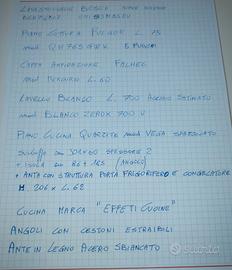 LAVASTOVIGLIE BOSCH
PIANO COTTURA FULGOR L. 75
mod
CAPPA ASPIRAZIONE FALMEC
mod L. 60
LAVELLO BLANCO L. 700 ACCIAIO SATINATO
mod BLANCO ZEROX 700 U
PIANO CUCINA QUARZITE mod VEGA SPAZZOLATO
SVILUPPO cm 301X60 SPESSORE 2
+ ISOLA cm 86 X 185 (ANGOLO)
+ ANTA CON STRUTTURA PORTA FRIGORIFERO E CONGELATORE
H. 206 X L. 62
CUCINA MARCA "EFFETI CUCINE"
ANGOLI CON CESTONI ESTRAIBILI
ANTE IN LEGNO ACERO SBIANCATO
subito